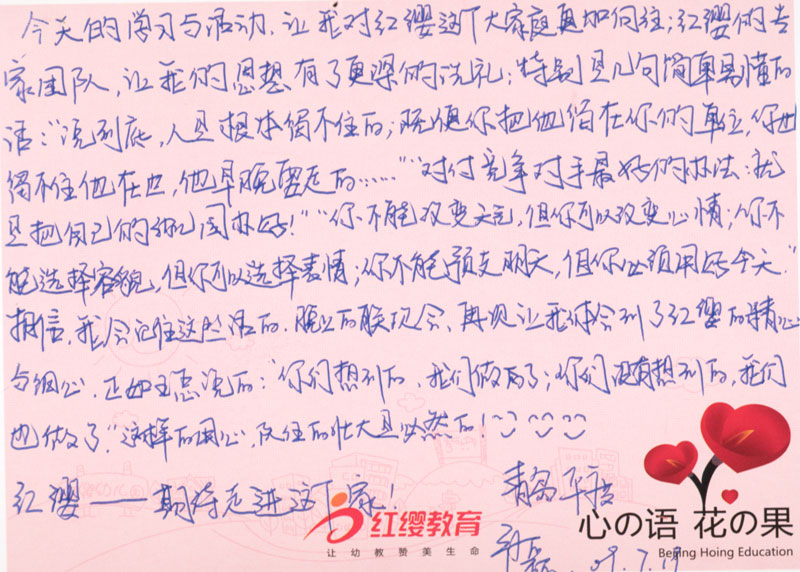 今天的学习与活动,让我对红缨这个大家庭更加向往;红缨的专
家团队,让我的思想有了更深的洗礼;特别是几句简单易懂的
话:"说到底,人是根本留不住的;既便你把他留在你的单位,你也
留不住他在也,他早晚要走的……""对付竞争对手最好的办法:就
是把自己的幼儿园办好!""你不能改变天气,但你可以改变心情;你不
能选择容貌,但你可以选择表情;你不能预支明天,但你必须用好今天."
相信,我会记住这些话的.晚上的联欢会、再次让我体会到了红缨的精心
与细心.正如王总说的:"你们想到的,我们做到了;你们没有想到的,我们
也做了."这样的用心,队伍的壮大是必然的!
红缨——期待走进这个家!
青岛
09.7.19
红缨教育
让幼教赞美生命
心の语 花の果
Beijing Hoing Education